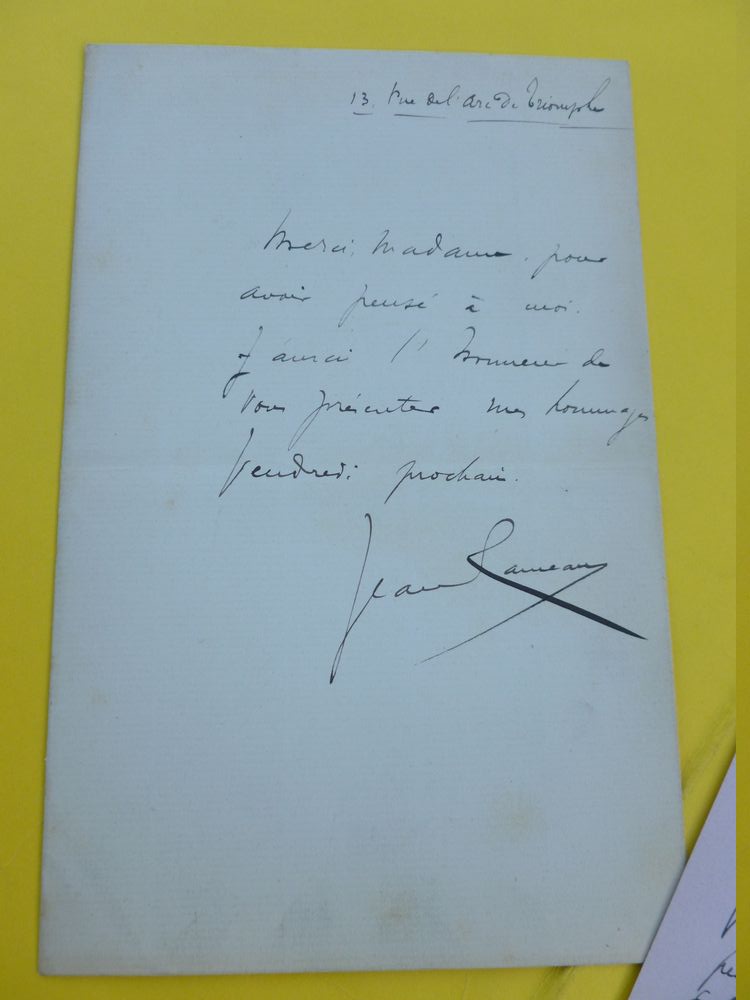 13. rue de l'Arc de Triomphe
Merci, Madame, pour
avoir pensé à moi.
J'aurai l'honneur de
vous présenter mes hommages
Vendredi prochain.
Jean Rameau